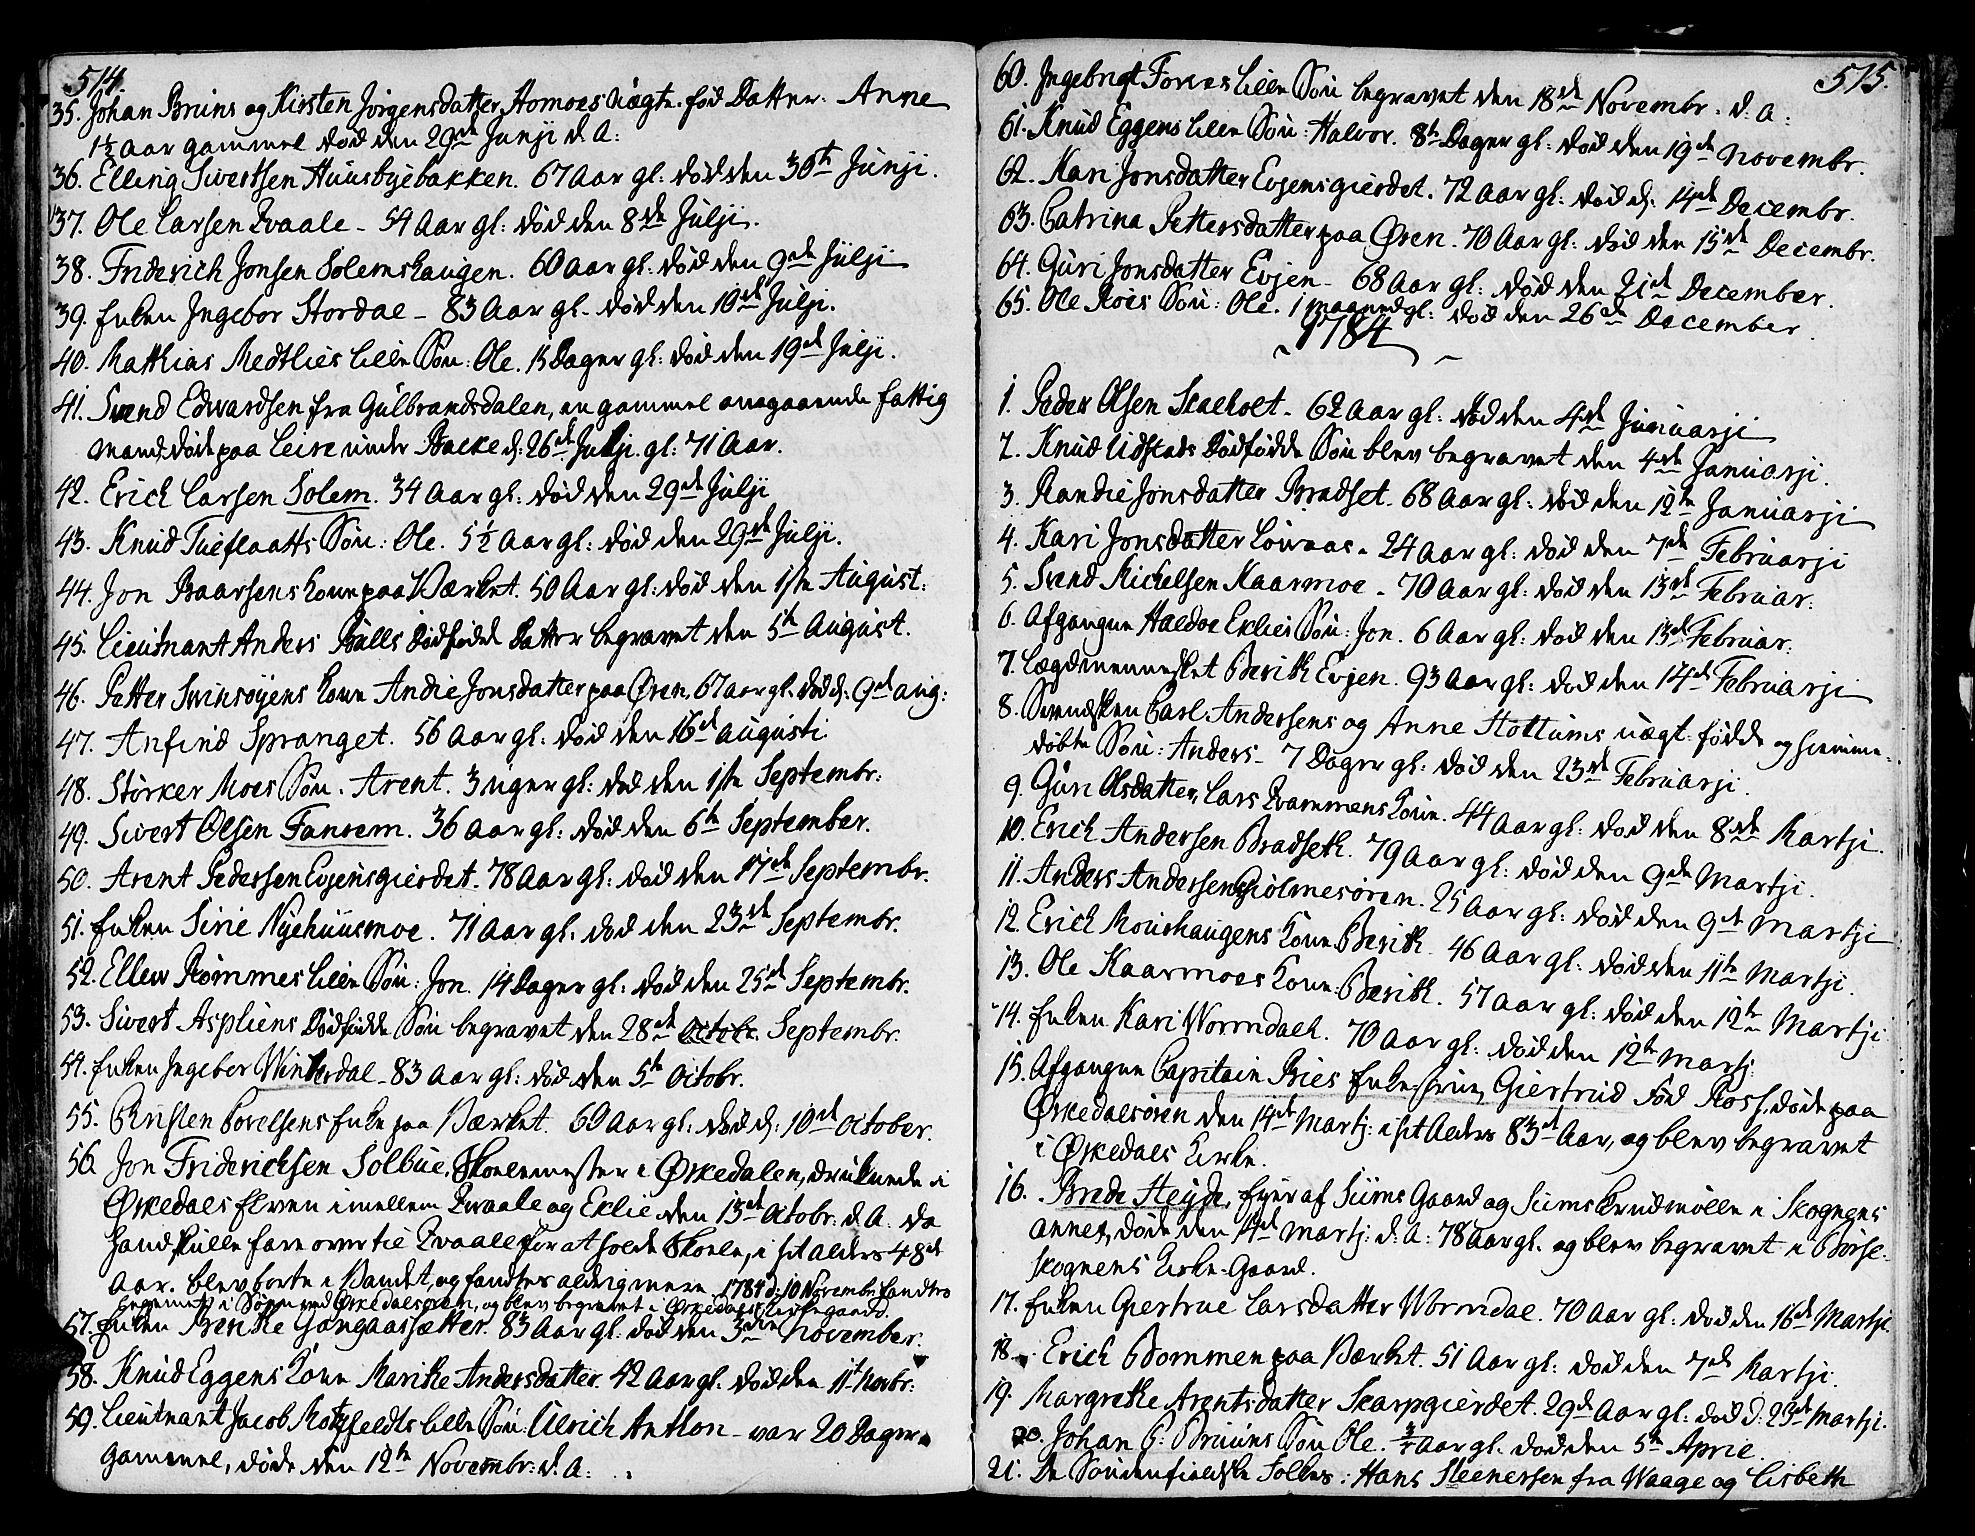 514.
35. Johan Bruns og Kirsten Jörgensdatter Homoes uægte. föd Datter: Anne
1½ Aar gammel död den 29de Junji d. A:
36. Elling Sivertsen Huusbyebakken. 67 Aar gl: död den 30te Junji.
37. Ole Larsen Qvaale - 54 Aar gl: död den 8de Julji.
38. Friderich Jonsen Solemshaugen. 60 Aar gl: död den 9de Julji
39. Enken Ingebor Stordal - 83 Aar gl. död den 10de Julji.
40. Mathias Medlies lille Sön: Ole. Dager gl: död den 19de Julji.
41. Svend Edvardsen fra Gulbrandsdalen, en gammel omgaaende fattig
mand, döde paa Leire under d: 26de Julji. gl: 71 Aar.
42. Erich Larsen Solem. 34 Aar gl: död den 29de Julji
43. Knud Tueflaatts Sön: Ole. 5½ Aar gl: död den 29de Julji.
44. Jon Baarsens Kone paa Værket. 50 Aar gl: död den 1ste August:
45. Lieutnant Anders Balls dödfödde Datter begravet den 5te August.
46. Petter Svinsöyens Kone Andie Jonsdatter paa Øren, 67 Aar gl. död d: 9de Aug:
47. Anfind Spranget. 56 Aar gl: död den 16de Augusti
48. Störker Moes Sön. Arent. 3 uger gl: död den 1ste Septembr:
49. Sivert Olsen Fansem. 36 Aar gl: död den 6te September.
50. Arent Pedersen Evjensgierdet. 78 Aar gl: död den 17de Septembr.
51. Enken Sirie Nyehuusmoe. 71 Aar gl. död den 23de Septembr.
52. Ellev Römmes lille Sön: Jon. 14 Dager gl: död den 25de Septembr.
53. Sivert Aspliens dödfödde Sön begravet den 28de Octobr. Septembr.
54. Enken Ingebor Winterdal - 83 Aar gl: död den 5te Octobr.
55. Christen Torelsens Enke paa Værket. 60 Aar gl: död d: 10de October.
56. Jon Friderichsen Solbue, Skolemester i Ørkedalen, druknede i
Ørkedals Elven imellem Qvaale og Eklie den 13de Octobr: d. A. da
hand skulle fare over til Qvaale for at holde Skole, i sit alders 48de
Aar. blev borte i Vandet, og fandtes aldrig mere. 1784 d: 10 Novembr fandtes
i Söen ved Ørkedalsören, og blev begravet i Ørkedals Kirkegaard.
57. Enken Benthe Gangaassætter. 83 Aar gl: död den 3die November.
58. Knud Eggens Kone Marithe Andersdatter. 42 Aar gl. död den 11te Novbr:
59. Lieutnant Jacob Motzfeldts lille Sön: Ulrich Anthon - var 20 Dager
gammel, döde den 12te Novembr: d. A:
515.
60. Ingebrigt Forres lille Sön begravet den 18de Novembr. d. A:
61. Knud Eggens lille Sön: Halvor. 8te Dager gl: död den 19de Novembr.
62. Kari Jonsdatter Evjensgierdet. 72 Aar gl: död d: 14de Decembr.
63. Catrina Pettersdatter paa Øren. 70 Aar gl: död den 15de Decembr.
64. Guri Jonsdatter Evjen - 68 Aar gl: död den 21de December.
65. Ole Moes Sön: Ole. 1 maaned gl: död den 26de December.
1784
1. Peder Olsen Skaeholt - 62 Aar gl: död den 4de Januarji
2. Knud Lidstads dödfödde Sön blev begravet den 4de Januarji.
3. Randie Jonsdatter Bradset. 68 Aar gl: död den 12te Januarji
4. Kari Jonsdatter - 24 Aar gl: död den 7de Februarji
5. Svend Michelsen Kaarmoe - 70 Aar gl: död den 13de Februar:
6. Afgangne Haldoe Eklies Sön: Jon. 6 Aar gl: död den 13de Februar:
7. Lægdmennesket Berith Evjen. 93 Aar gl: död den 14de Februarji
8. Svendsken Carl Andersens og Anne Hottums uægt: födde og hiemme-
döbte Sön: Anders - 7 Dager gl: död den 23de Februarji.
9. Guri Olsdatter, Lars Qvammens Kone. 44 Aar gl: död den 8de Martji.
10. Erich Andersen Bradseth. 79 Aar gl: död den 9de Martji.
11. Anders Andersen Giölmesören. 25 Aar gl: död den 9de Martji
12. Erich Moushaugens Kone Berith. 46 Aar gl: död den 11te Martji.
13. Ole Kaarmoes Kone: Berith. 57 Aar gl: död den 12te Martji.
14. Enken Kari Wormdahl. 70 Aar gl: död den 12te Martj:
15. Afgangne Capitain Bries Enkefrue, Giertrud Föd Ross, döde paa
Ørkedalsören den 14de Martj: i sit Alders 83de Aar, og blev begravet
i Ørkedals Kirke.
16. Brede Heyde, Eyer af Siims Gaard og Siims Krudmölle i Skognens
annex, döde den 14de Martj: d. A: 78 Aar gl. og blev begravet i Börse-
skognens Kirke-Gaard.
17. Enken Giertrue Larsdatter Wormdal. 70 Aar gl: död den 16de Martji.
18. Erich Bommen paa Værket. 51 Aar gl: död den 7de Martji.
19. Margrethe Arentsdatter Skarpgierdet. 29de Aar gl: död d: 23de Martji.
20. Johan C: Bruuns Sön Ole. ¾ Aar gl. död den 5te April.
21. De Söndenfieldske Folkes: Hans Steenersen fra Waage og Lisbeth